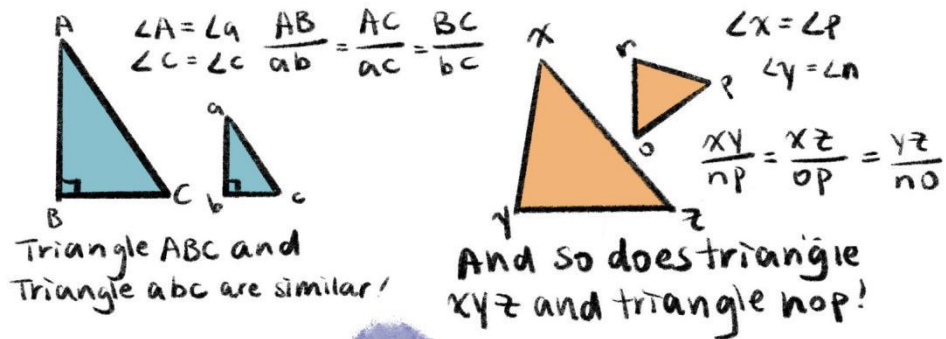 A
∠A = ∠a
∠C = ∠c
AB/ab = AC/ac = BC/bc
a
B
C
b
c
Triangle ABC and
Triangle abc are similar!
x
n
p
o
y
z
∠x = ∠p
∠y = ∠n
xy/np = xz/op = yz/no
And so does triangle
xyz and triangle nop!